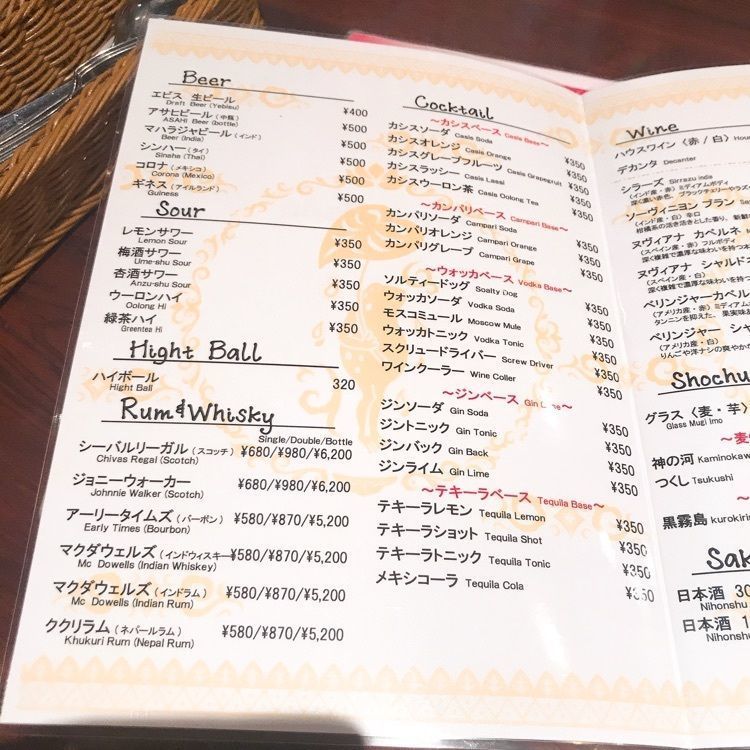 Beer
エビス 生ビール ¥400
Draft Beer (Yebisu)
アサヒビール（中瓶） ¥500
ASAHI Beer (bottle)
マハラジャビール（インド） ¥500
Beer (India)
シンハー（タイ） ¥500
Sinaha (Thai)
コロナ（メキシコ） ¥500
Corona (Mexico)
ギネス（アイルランド） ¥500
Guiness
Sour
レモンサワー ¥350
Lemon Sour
梅酒サワー ¥350
Ume-shu Sour
杏酒サワー ¥350
Anzu-shu Sour
ウーロンハイ ¥350
Oolong Hi
緑茶ハイ ¥350
Greentea Hi
Hight Ball
ハイボール 320
Hight Ball
Rum&Whisky
Single/Double/Bottle
シーバルリーガル（スコッチ） ¥680/¥980/¥6,200
Chivas Regal (Scotch)
ジョニーウォーカー ¥680/¥980/¥6,200
Johnnie Walker (Scotch)
アーリータイムズ（バーボン） ¥580/¥870/¥5,200
Early Times (Bourbon)
マクダウェルズ（インドウィスキー ¥580/¥870/¥5,200
Mc Dowells (Indian Whiskey)
マクダウェルズ（インドラム） ¥580/¥870/¥5,200
Mc Dowells (Indian Rum)
ククリラム（ネパールラム） ¥580/¥870/¥5,200
Khukuri Rum (Nepal Rum)
Cocktail
～カシスベース Casis Base～
カシスソーダ Casis Soda ¥350
カシスオレンジ Casis Orange ¥350
カシスグレープフルーツ Casis Grapegruit ¥350
カシスラッシー Casis Lassi ¥350
カシスウーロン茶 Casis Oolong Tea ¥350
～カンパリベース Campari Base～
カンパリソーダ Campari Soda ¥350
カンパリオレンジ Campari Orange ¥350
カンパリグレープ Campari Grape ¥350
～ウォッカベース Vodka Base～
ソルティードッグ Soalty Dog ¥350
ウォッカソーダ Vodka Soda ¥350
モスコミュール Moscow Mule ¥350
ウォッカトニック Vodka Tonic ¥350
スクリュードライバー Screw Driver ¥350
ワインクーラー Wine Coller ¥350
～ジンベース Gin Lime～
ジンソーダ Gin Soda ¥350
ジントニック Gin Tonic ¥350
ジンバック Gin Back ¥350
ジンライム Gin Lime ¥350
～テキーラベース Tequila Base～
テキーラレモン Tequila Lemon ¥350
テキーラショット Tequila Shot ¥350
テキーラトニック Tequila Tonic ¥350
メキシコーラ Tequila Cola ¥350
Wine
ハウスワイン〈赤 / 白〉
デカンタ Decanter
シラーズ Sirrazu inda
（インド産・赤）ミディアムボディ
深く濃い赤色。ブラックチェリーやラズ
ソーヴィニヨン ブラン
（インド産・白）辛口
柑橘系の活き活きとした香り、
ヌヴィアナ カベルネ
（スペイン産・赤）フルボディ
深く複雑で濃厚な味わいを持つ
ヌヴィアナ シャルドネ
（スペイン産・白）
深く複雑で濃厚な味わいを持つ
ベリンジャーカベル
（アメリカ産・赤）
タンニンを抑えた、果実味
ベリンジャー シャル
（アメリカ産・白）
りんごや洋ナシの爽やか
Shochu
グラス〈麦・芋〉
Glass Mugi Imo
～麦
神の河 Kaminokaw
つくし Tsukushi
黒霧島 kurokirin
Sak
日本酒 30
Nihonshu
日本酒 1
Nihonshu